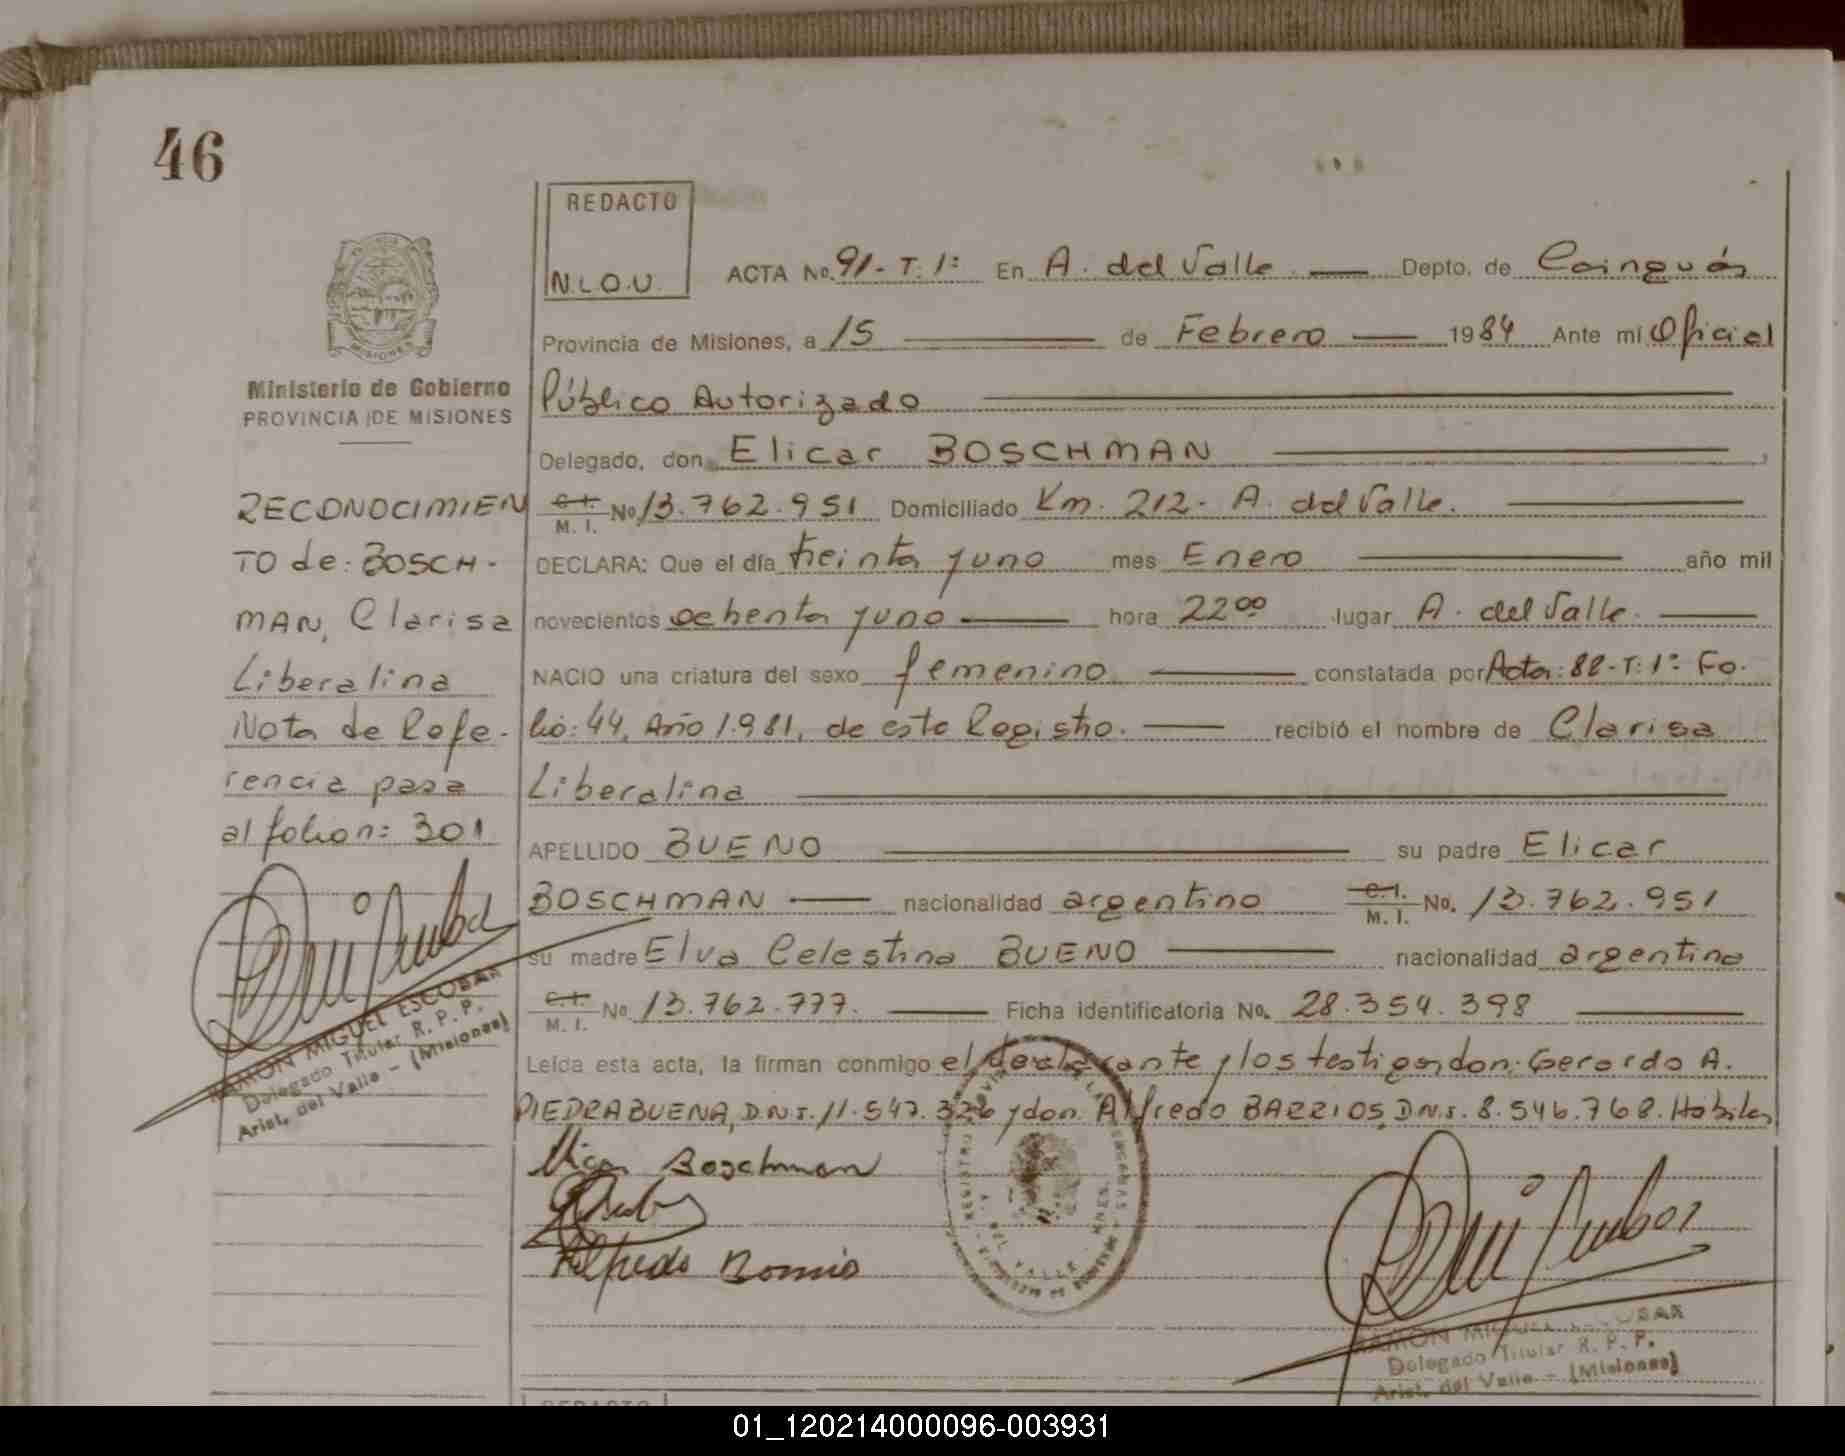 46
REDACTO
N.L.O.U.
ACTA No. 91- T: 1º En A. del Valle. Depto. de Cainguás
Provincia de Misiones, a 15 de Febrero 1984 Ante mi Oficial
Público Autorizado
Delegado, don Elicar BOSCHMAN
C.I. M. I. No 13.762.951 Domiciliado Km. 212- A. del Valle.
DECLARA: Que el día treinta y uno mes Enero año mil
novecientos ochenta y uno hora 22⁰⁰ lugar A. del Valle.
NACIO una criatura del sexo femenino constatada por Acta: 88-T: 1º Fo.
lio: 44, Año 1.981, de este Registro. recibió el nombre de Clarisa
Liberalina
APELLIDO BUENO su padre Elicar
BOSCHMAN nacionalidad argentino C.I. M. I. No. 13.762.951
su madre Elva Celestina BUENO nacionalidad argentina
C.I. M. I. No 13.762.777. Ficha identificatoria No. 28.354.398
Leída esta acta, la firman conmigo el declarante y los testigos, don: Gerardo A.
PIEDRABUENA, D.N.I. 11.547.326 y don Alfredo BARRIOS, D.N.I. 8.546.768. Hábiles
Boschman
Alfredo Barrios
MISIONES
Ministerio de Gobierno
PROVINCIA DE MISIONES
RECONOCIMIEN
TO de: BOSCH-
MAN, Clarisa
Liberalina
Nota de Refe-
rencia pasa
al folio n: 301
RAMON MIGUEL ESCOBAR
Delegado Titular R. P. P.
Arist. del Valle - (Misiones)
RAMON MIGUEL ESCOBAR
Delegado Titular R. P. P.
Arist. del Valle - (Misiones)
REDACTO
01_120214000096-003931